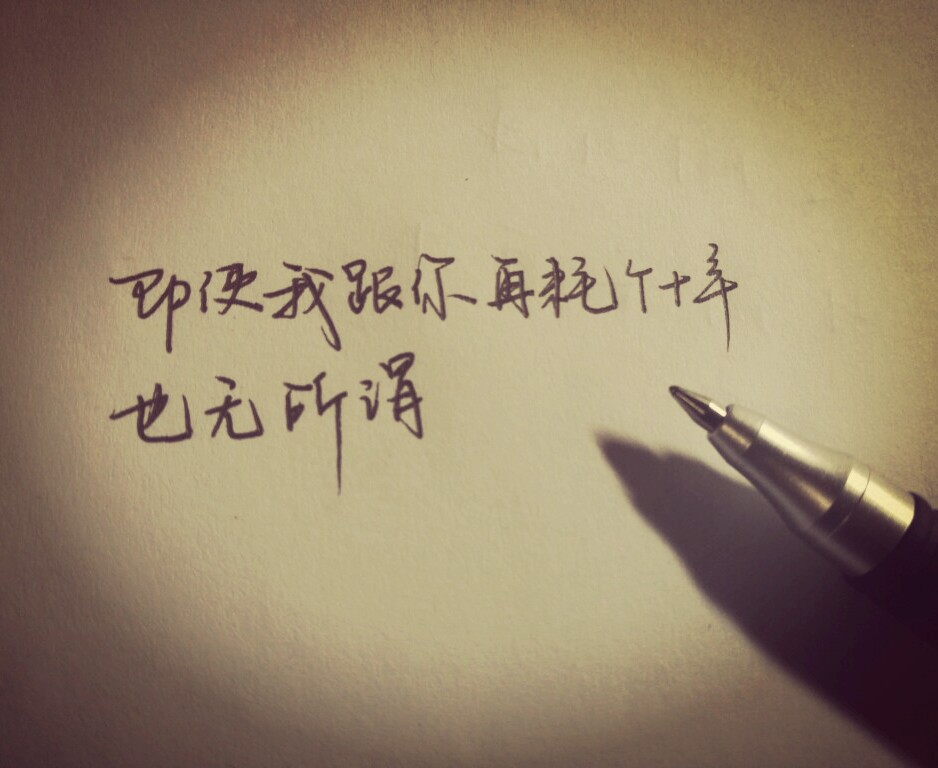 即便我跟你再耗个十年
也无所谓